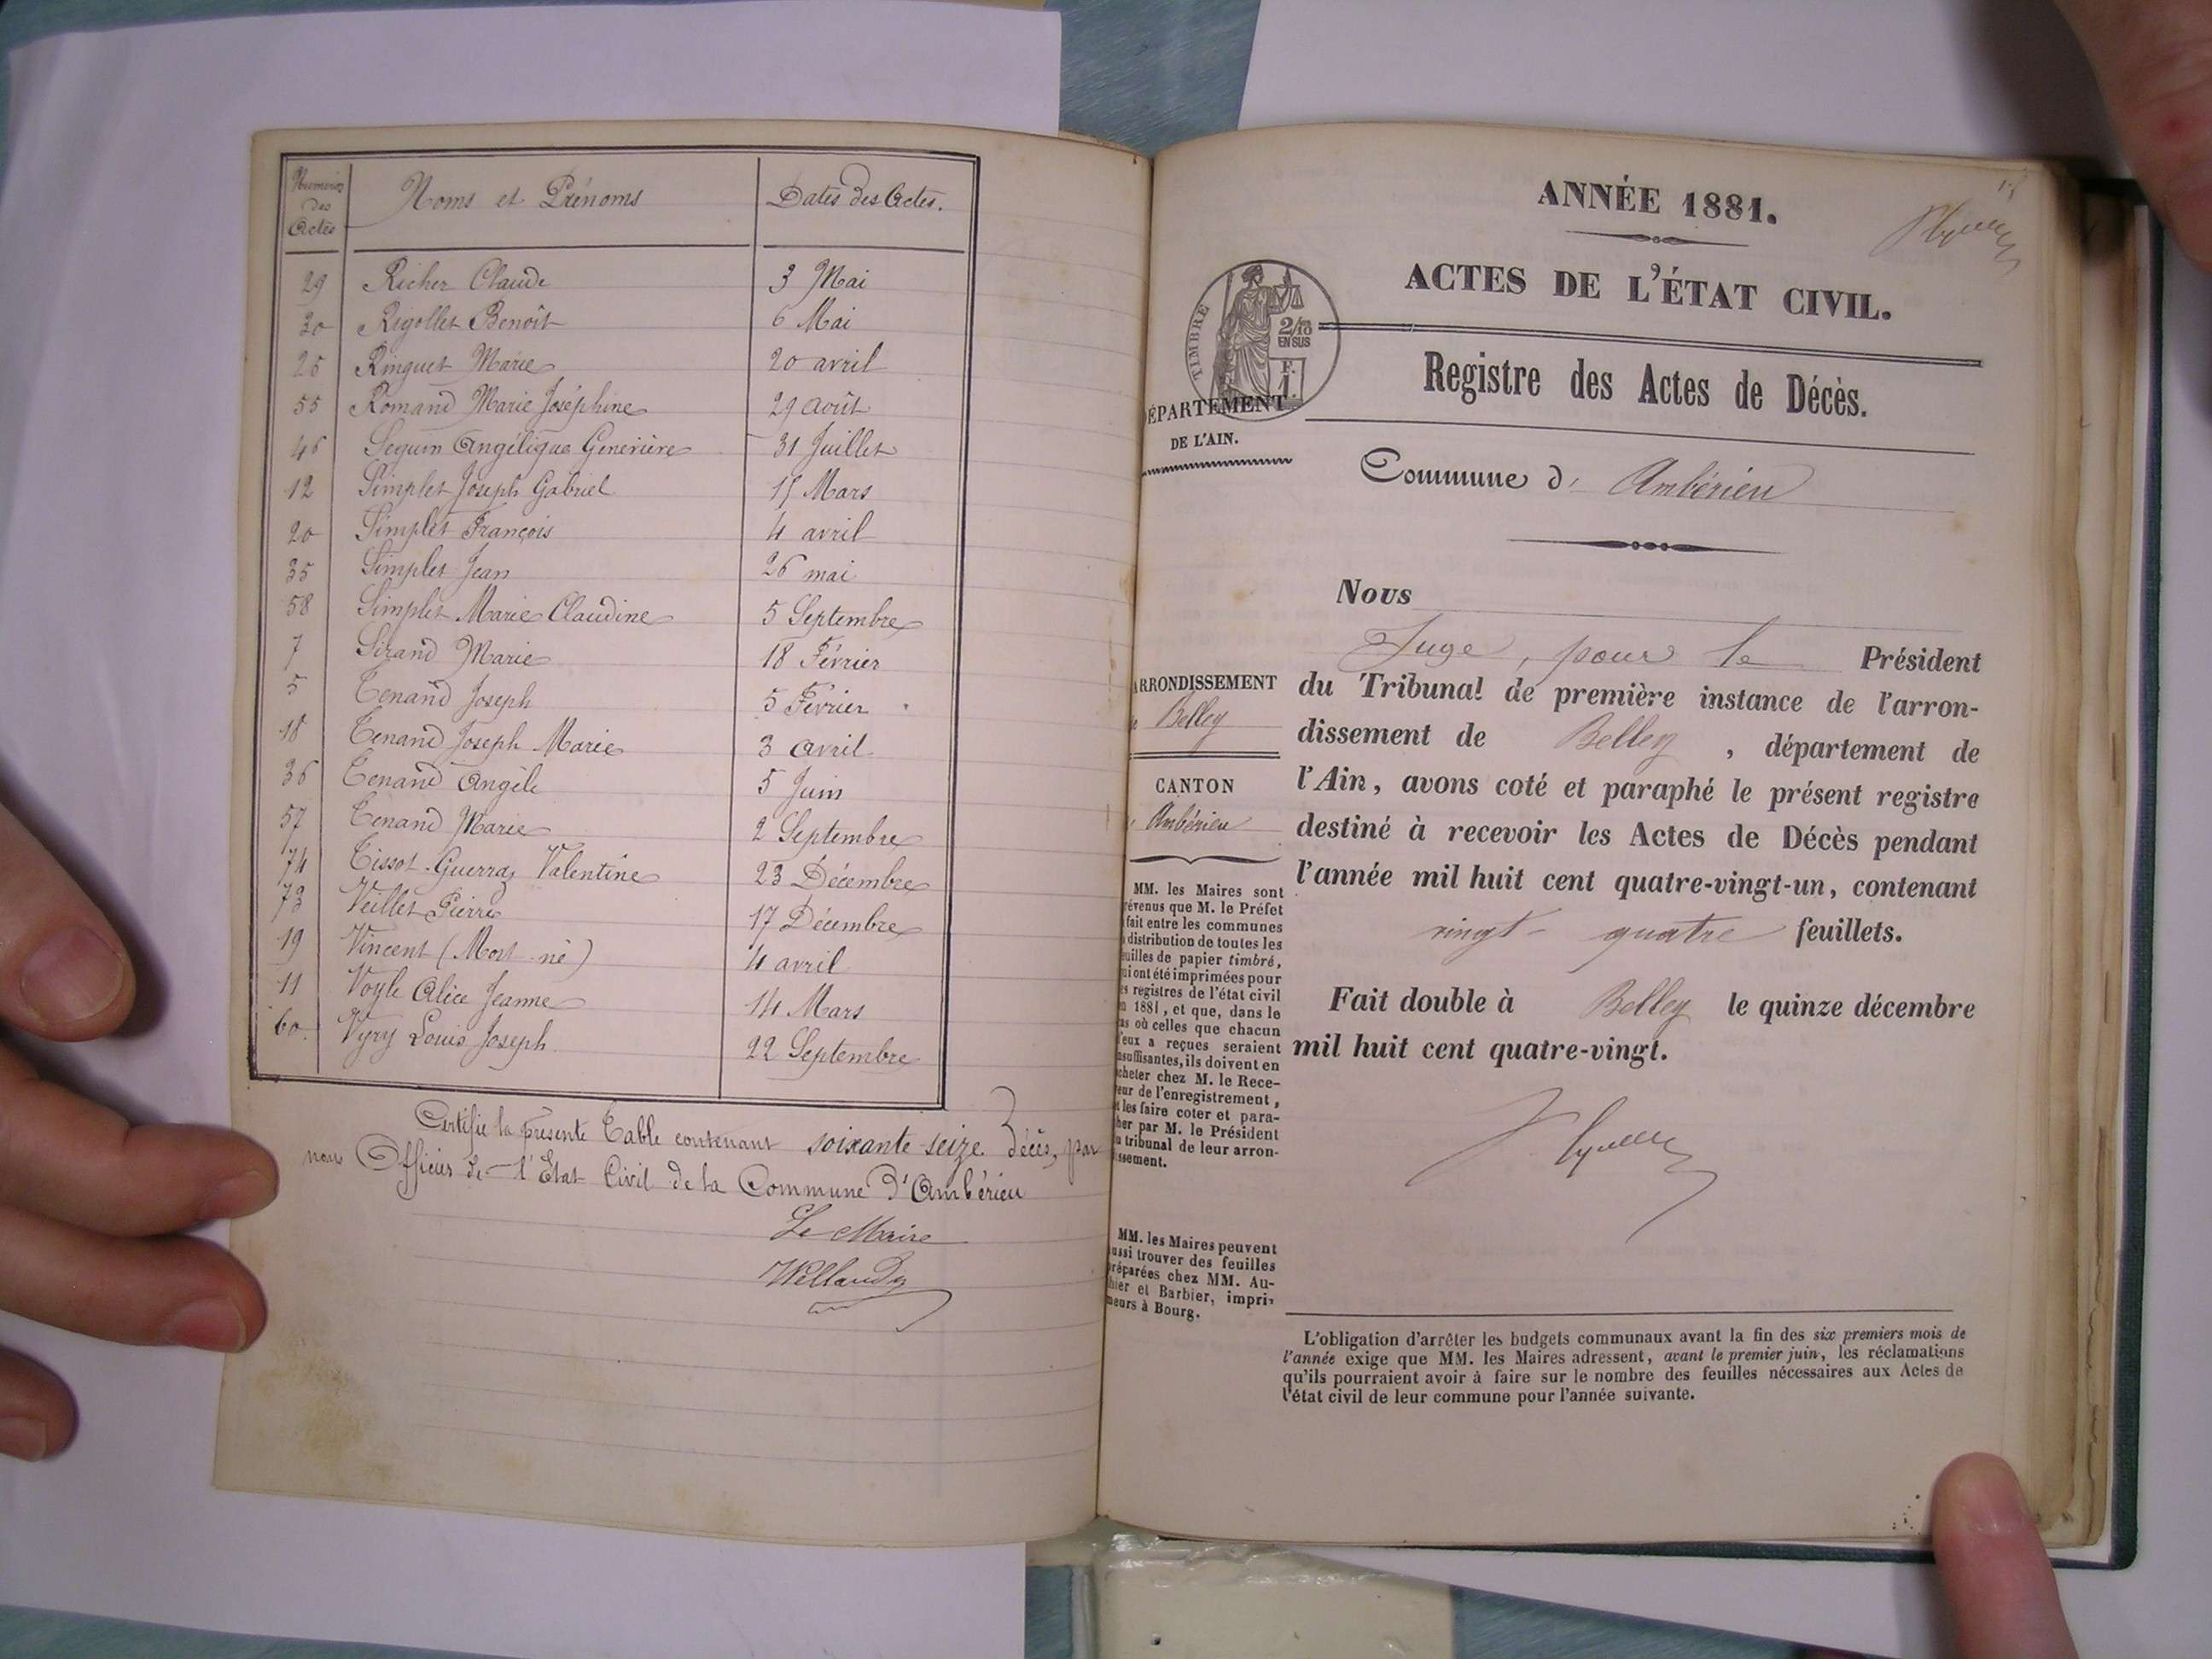 Numéros des Actes | Noms et Prénoms | Dates des Actes.
29 Richer Claude 3 Mai
30 Rigollet Benoît 6 Mai
25 Ringuet Marie 20 avril
55 Romand Marie Joséphine 29 août
46 Seguin Angélique Geneviève 31 Juillet
12 Simplet Joseph Gabriel 15 Mars
20 Simplet François 4 avril
35 Simplet Jean 26 mai
58 Simplet Marie Claudine 5 Septembre
7 Sirand Marie 18 Février
5 Tenand Joseph 5 Février
18 Tenand Joseph Marie 3 avril
36 Tenand Angèle 5 Juin
57 Tenand Marie 2 Septembre
74 Tissot-Guerraz Valentine 23 Décembre
73 Veillet Pierre 17 Décembre
19 Vincent (Mort-né) 4 avril
11 Voyle Alice Jeanne 14 Mars
60. Vyry Louis Joseph 22 Septembre
Certifie la présente Table contenant soixante-seize décès, par
nous Officier de l'Etat Civil de la Commune d'Ambérieu
Le Maire
ANNÉE 1881.
ACTES DE L'ÉTAT CIVIL.
TIMBRE
2/10
EN SUS
F.
1.
Registre des Actes de Décès.
ÉPARTEMENT
DE L'AIN.
Commune d' Ambérieu
Nous
Juge, pour le Président
du Tribunal de première instance de l'arron-
dissement de Belley, département de
l'Ain, avons coté et paraphé le présent registre
destiné à recevoir les Actes de Décès pendant
l'année mil huit cent quatre-vingt-un, contenant
vingt-quatre feuillets.
Fait double à Belley le quinze décembre
mil huit cent quatre-vingt.
ARRONDISSEMENT
Belley
CANTON
Ambérieu
MM. les Maires sont
révenus que M. le Préfet
fait entre les communes
distribution de toutes les
euilles de papier timbré,
ui ont été imprimées pour
es registres de l'état civil
n 1881, et que, dans le
as où celles que chacun
'eux a reçues seraient
nsuffisantes, ils doivent en
cheter chez M. le Rece-
eur de l'enregistrement,
t les faire coter et para-
her par M. le Président
u tribunal de leur arron-
ssement.
MM. les Maires peuvent
ussi trouver des feuilles
réparées chez MM. Au-
hier et Barbier, impri-
meurs à Bourg.
L'obligation d'arrêter les budgets communaux avant la fin des six premiers mois de
l'année exige que MM. les Maires adressent, avant le premier juin, les réclamations
qu'ils pourraient avoir à faire sur le nombre des feuilles nécessaires aux Actes de
l'état civil de leur commune pour l'année suivante.